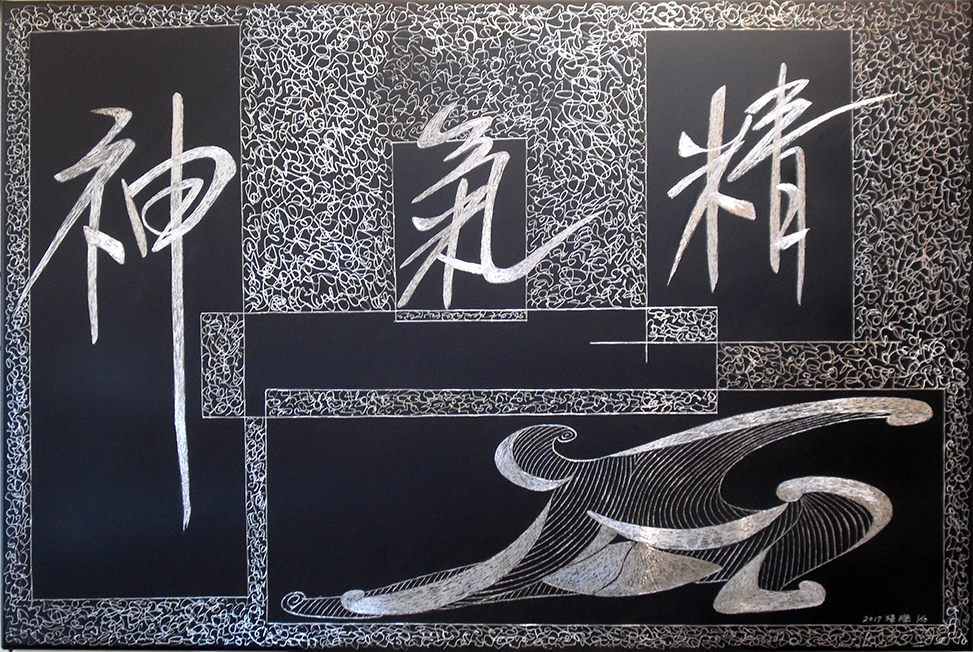 精氣神
2017